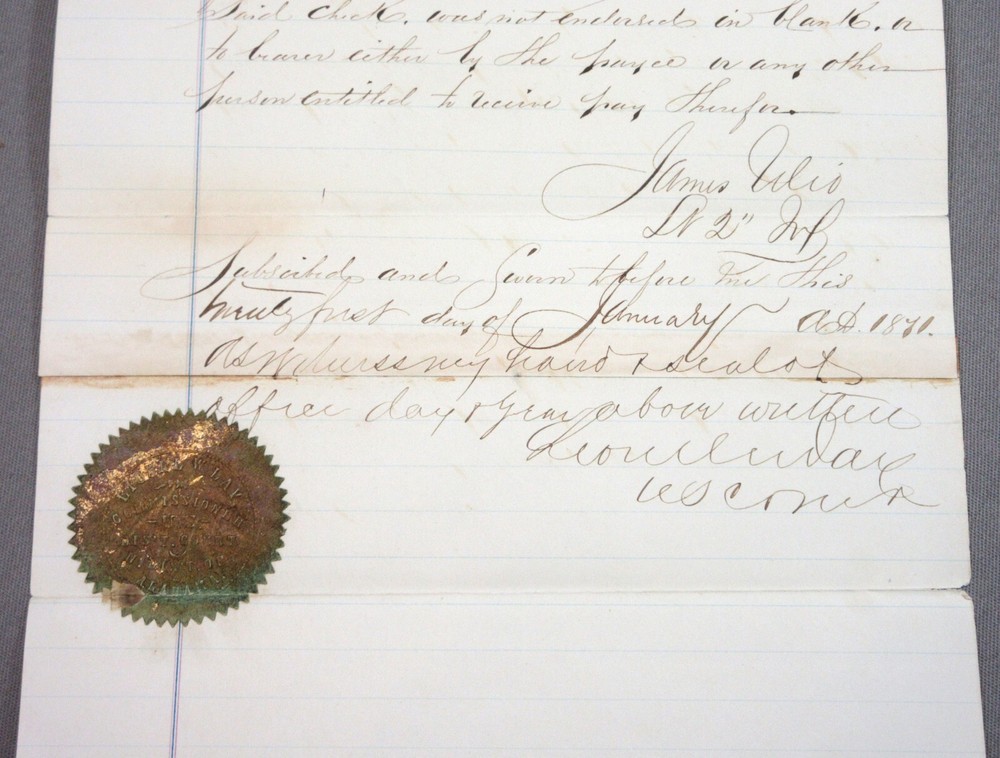 Said check, was not endorsed in blank, or
to bearer either by the payee or any other
person entitled to receive pay therefor.
James Ulio
Lt 2" Inf
Subscribed and Sworn to before me this
twenty first day of January A.D. 1871.
As Witness my hand & seal of
office day & year above written
Day
US Com